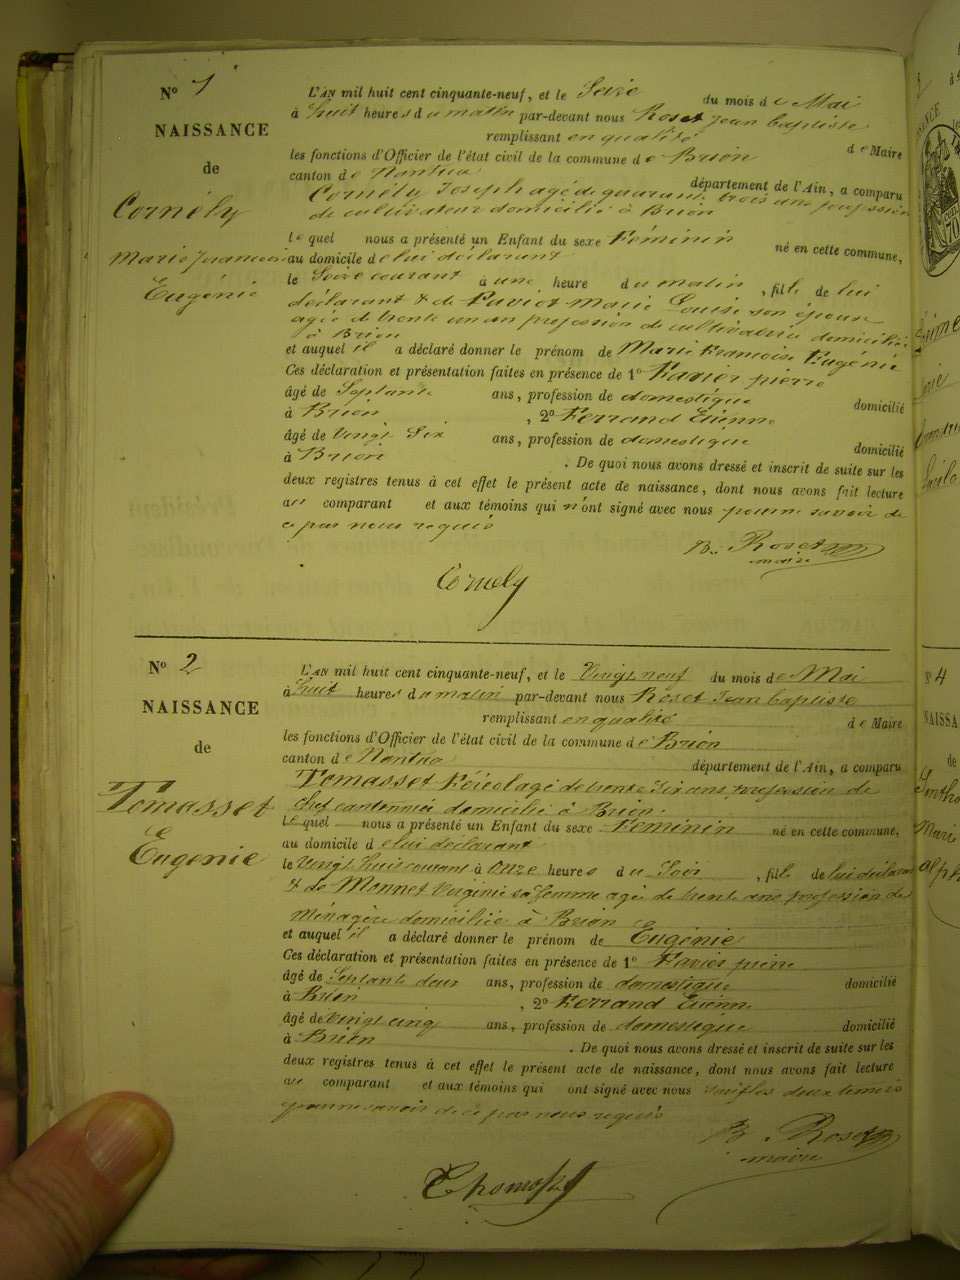 N° 1
NAISSANCE
de
Cornély
Marie Francoise
Eugénie
L'AN mil huit cent cinquante-neuf, et le Seize du mois de Mai
à huit heures du matin par-devant nous Roset Jean baptiste
remplissant en qualité de Maire
les fonctions d'Officier de l'état civil de la commune de Brion
canton de Nantua département de l'Ain, a comparu
Cornély Joseph agé de quarante trois ans profession
de cultivateur domicilié à Brion
Lequel nous a présenté un Enfant du sexe Féminin né en cette commune,
au domicile de lui déclarant
le Seize courant à une heure du matin, fille de lui
déclarant & de Marie Louise son épouse
agée de trente un an profession de cultivatrice domiciliée
à Brion
et auquel il a déclaré donner le prénom de Marie Francoise Eugénie
Ces déclaration et présentation faites en présence de 1° Favier pierre
âgé de Septante ans, profession de domestique domicilié
à Brion, 2° Ferrand Etienne
âgé de Vingt Six ans, profession de domestique domicilié
à Brion. De quoi nous avons dressé et inscrit de suite sur les
deux registres tenus à cet effet le présent acte de naissance, dont nous avons fait lecture
au comparant et aux témoins qui n'ont signé avec nous pour ne savoir de
ce par nous requis
B. Roset
maire
Cornely
N° 2
NAISSANCE
de
Tomasset
Eugénie
L'AN mil huit cent cinquante-neuf, et le Vingt neuf du mois de Mai
à huit heures du matin par-devant nous Roset Jean baptiste
remplissant en qualité de Maire
les fonctions d'Officier de l'état civil de la commune de Brion
canton de Nantua département de l'Ain, a comparu
Tomasset agé de trente Six ans profession de
chef cantonnier domicilié à Brion
Lequel nous a présenté un Enfant du sexe Féminin né en cette commune,
au domicile de lui déclarant
le Vingt huit courant à Onze heures du Soir, fille de lui déclarant
& de Monnet Virginie sa femme agée de trente ans profession de
Ménagère domiciliée à Brion
et auquel il a déclaré donner le prénom de Eugénie
Ces déclaration et présentation faites en présence de 1° Favier pierre
âgé de Septante deux ans, profession de domestique domicilié
à Brion, 2° Ferrand Etienne
âgé de Vingt cinq ans, profession de domestique domicilié
à Brion. De quoi nous avons dressé et inscrit de suite sur les
deux registres tenus à cet effet le présent acte de naissance, dont nous avons fait lecture
au comparant et aux témoins qui ont signé avec nous deux temoins
pour ne savoir de ce par nous requis
B. Roset
maire
N° 4